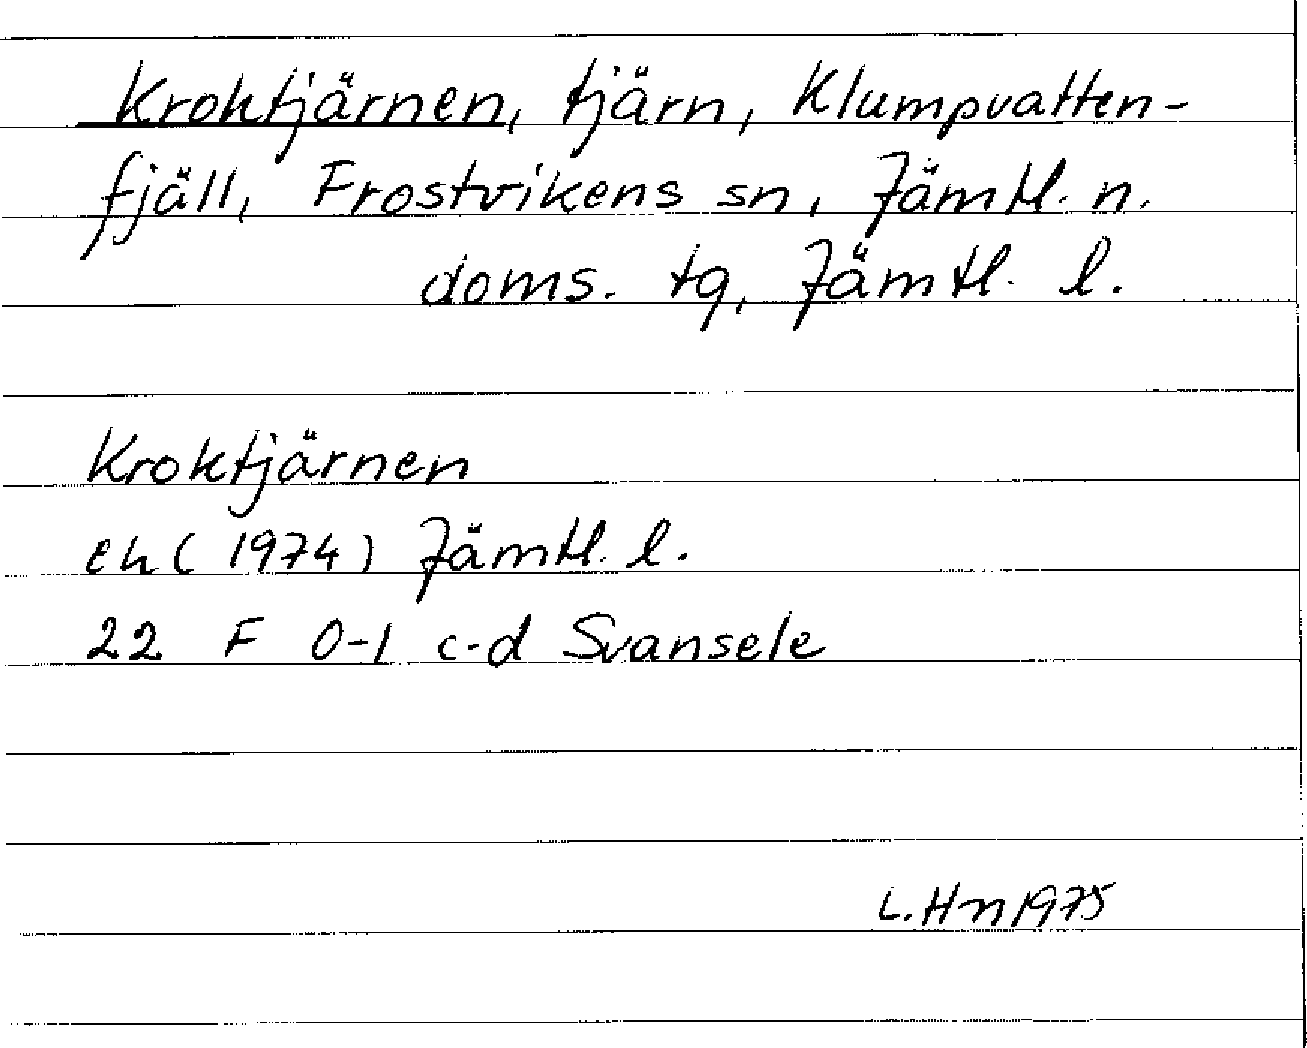 Kroktjärnen, tjärn, Klumpvatten-
fjäll, Frostvikens sn, Jämtl. n.
doms. tg, Jämtl. l.
Kroktjärnen
ek (1974) Jämtl. l.
22 F 0-1 c-d Svansele
L. Hn 1975